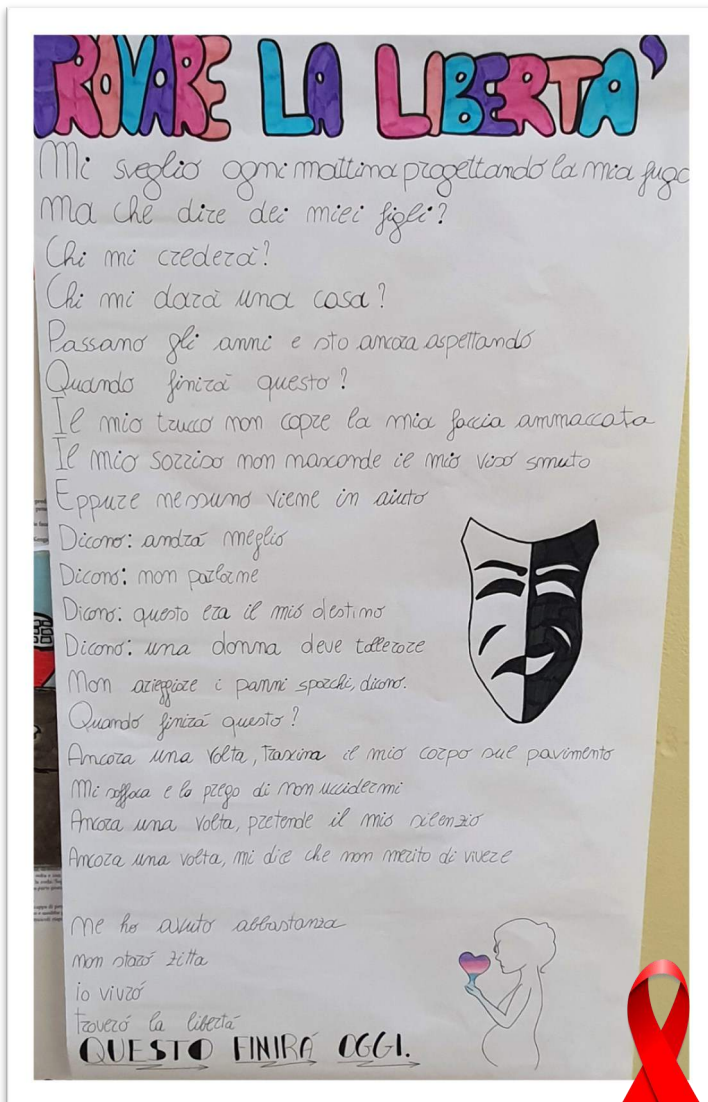 TROVARE LA LIBERTA'
Mi sveglio ogni mattina progettando la mia fuga
Ma che dire dei miei figli?
Chi mi crederà?
Chi mi darà una casa?
Passano gli anni e sto ancora aspettando
Quando finirà questo?
Il mio trucco non copre la mia faccia ammaccata
Il mio sorriso non nasconde il mio viso smuto
Eppure nessuno viene in aiuto
Dicono: andrà meglio
Dicono: non parlarne
Dicono: questo era il mio destino
Dicono: una donna deve tollerare
Non arieggiare i panni sporchi, dicono.
Quando finirà questo?
Ancora una volta, trascina il mio corpo sul pavimento
Mi soffoca e lo prego di non uccidermi
Ancora una volta, pretende il mio silenzio
Ancora una volta, mi dice che non merito di vivere
Ne ho avuto abbastanza
non starò zitta
io vivrò
troverò la libertà
QUESTO FINIRÁ OGGI.